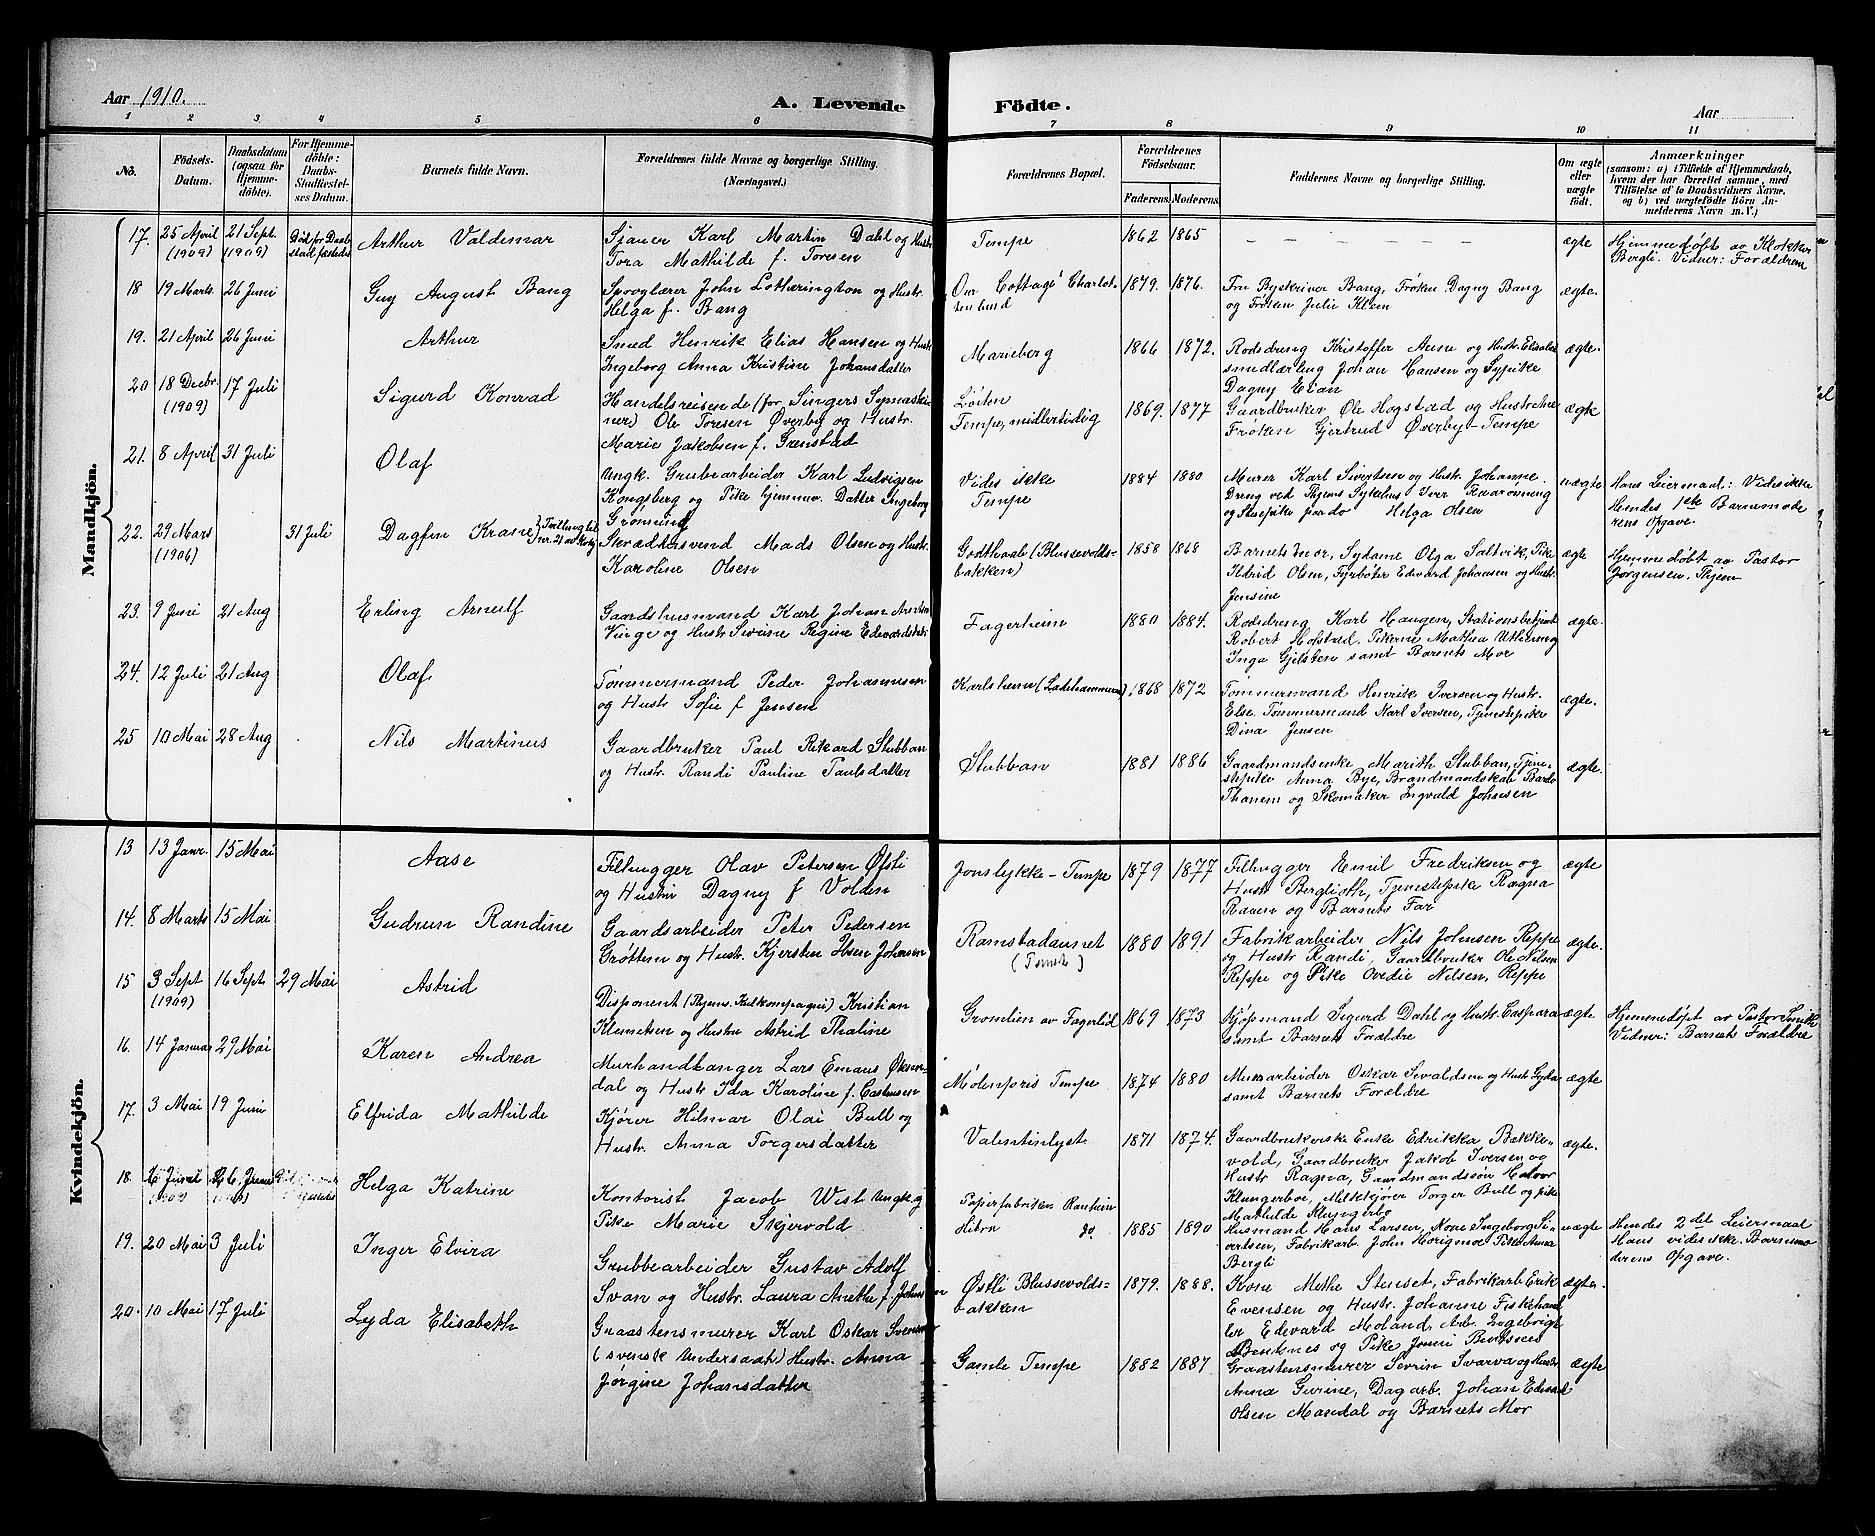 Aar 1910.
A. Levende Födte.
Aar
1 2 3 4 5 6 7 8 9 10 11
No. Födsels-Datum. Daabsdatum (ogsaa for Hjemme-döbte). For Hjemme-döbte: Daabs-Stadfæstel-ses Datum. Barnets fulde Navn. Forældrenes fulde Navne og borgerlige Stilling. (Næringsvei.) Forældrenes Bopæl. Forældrenes Födselsaar. Faderens. Moderens. Faddernes Navne og borgerlige Stilling. Om ægte eller uægte födt. Anmærkninger (saasom: a) i Tilfælde af Hjemmedaab, hvem der har forrettet samme, med Tilföielse af to Daabsvidners Navne, og b) ved uægtefödte Börn An-melderens Navn m. V.)
Mandkjön.
17. 25 April (1909) 21 Sept. (1909) Død før Daab stadfæstedes Arthur Valdemar
Sjauer Karl Martin Dahl og Hustr
Tora Mathilde f. Toresen
Tempe 1862 1865 – – – – – – ægte
Hjemmedøbt av Klokker
Bergli. Vidner: Forældrene
18 19 Marts 26 Juni Guy August Bang
Sproglærer John Lotherington og Hustr.
Helga f. Bang
Our Cottage Charlot-
tenlund
1879. 1876.
Fru Byskriver Bang, Frøken Dagny Bang
og Frøken Julie Klem
ægte.
19. 21 April 26 Juni Arthur
Smed Henrik Elias Hansen og Hustr
Ingeborg Anna Kristine Johansdatter
Marieberg 1866 1872.
Rodsdreng Kristoffer Aune og Hustr. Elisabet
smedlærling Johan Hansen og Sypike
Dagny Elian
ægte.
20 18 Decbr. (1909) 17 Juli Sigurd Konrad
Handelsreisende (for Singers Symaski-
ner) Ole Toresen Øverby og Hustr.
Marie Jakobsen f. Grenstad
Løiten
Tempe, midlertidig
1869. 1877
Gaardbruker Ole Hogstad og Hustr
Frøken Gjertrud Øverby – Tempe
ægte
21. 8 April 31 Juli Olaf
Ungk. Grubearbeider Karl Ludvigsen
Kongsberg og Pike hjemmev. Datter Ingeborg
Grønning
Vides ikke
Tempe
1884 1880
Murer Karl Sivertsen og Hustr. Johanne.
Dreng ved Thjems Sykehus Iver
og Stuepike Helga Olsen
uægte
Hans Leiermaal: Vides ikke
Hendes 1ste Barnemode
rens Opgave.
22. 29 Mars (1906) 31 Juli Dagfin Krane
Skrædersvend Mads Olsen og Hustr.
Karoline Olsen
Godthaab (Blussevolds-
bakken)
1858 1868
Barnets Mor, Sydame Olga Saltvik, Pike
Ildrid Olsen, Fyrbøter Edvard Johansen og Hustr.
Jensine
ægte
Hjemmedøbt av Pastor
Jørgensen, Thjem
23. 9 Juni 21 Aug Erling Arnulf
Gaardshusmand Karl Johan
Vinge og Hustr Regine
Fagerheim 1880 1884.
Rodsdreng Karl Haugen, Stationsbetjent
Robert Hofstad, Pikerne Mathea
Inga Gjelsten samt Barnets Mor
ægte.
24. 12 Juli 21 Aug Olaf
Tømmermand Peder Johannesen
og Hustr Sofie f Jensen
Karlsheim (Ladehammeren) 1868 1872
Tømmermand Henrik Iversen og Hustr.
Else. Tømmermand Karl Iversen, Tjenestepike
Dina Jensen
ægte.
25 10 Mai 28 Aug Nils Martinus
Gaardbruker Paul Rikard Stubban
og Hustr. Randi Pauline Paulsdatter
Stubban 1881 1886
Gaardmandsenke Marith Stubban, Tjene-
stepike Anna Bye, Brandmandskab Bardo
Thanem og Skomaker Ingvald Johnsen
ægte.
Kvindekjön.
13 13 Janr. 15 Mai Aase
Filhugger Olav Petersen Øfsti
og Hustru Dagny f Volden
Jonslykke – Tempe 1879 1877
Filhugger Emil Fredriksen og
Hustr Berglioth, Tjenestepike Ragna
Raaen og Barnets Far
ægte
14. 8 Marts 15 Mai Gudrun Randine
Gaardsarbeider Peter Pedersen
Grøttem og Hustr. Kjersten Olsen Johansen
Ramstadaunet
1880 1891
Fabrikarbeider Nils Johnsen Reppe
og Hustr Randi, Gaardbruker Ole Nilsen
Reppe og Pike Ovedie Nilsen, Reppe
ægte.
15 3 Sept (1909) 16 Sept 29 Mai Astrid
Disponent (Thjems. Kulkompagni) Kristian
Klemetsen og Hustru Astrid Thaline
Gromlien av Fagerlid 1869 1873
Kjøpmand Sigurd Dahl og Hustr. Caspara
samt Barnets Forældre
ægte
Hjemmedøpt av Pastor Smith
Vidner: Barnets Forældre
16. 14 Januar 29 Mai Karen Andrea
Murhandlanger Lars Emans Øksen-
dal og Hustr Ida Karoline f. Castensen
Møllenpris Tempe 1874 1880
Murarbeider Oskar Sevaldsen og Hustr Lyda
samt Barnets Forældre
ægte
17. 3 Mai 19 Juni Elfrida Mathilde
Kjører Hilmar Olai Bull og
Hustr. Anna Torgersdatter
Valentinlyst 1871 1874.
Gaardbrukerske Enke Edrikka Bakke-
vold, Gaardbruker Jakob Iversen og
Hustr Ragna, Gaardmandssøn Halvor
Klungerbo, Melkekjører Torger Bull og pike
Mathilde Klungerbo
ægte.
18. (1909) Helga Katrine
Kontorist Jacob Wist Ungk. og
Pike Marie Skjervold
Papirfabriken Ranheim
Hitra do
1885 1890
Husmand Hans Larsen, Kone Ingeborg Si-
vertsen, Fabrikarb. John Horigmoe Pike Anna
Bergli
uægte
Hendes 2det Leiermaal
Hans vides ikke. Barnemo
derens Opgave.
19. 20 Mai 3 Juli Inger Elvira
Grubbearbeider Gustav Adolf
Svan og Hustr. Laura Anette f.
Østli Blussevolds-
bakken
1879. 1888.
Kone Methe Stenset, Fabrikarb Erik
Evensen og Hustr. Johanne Fiskehand
ler Edevard Moland, Arb. Ingebrigt
og Pike Jenni Bentsnes
ægte.
20. 10 Mai 17 Juli Lyda Elisabeth
Graastensmurer Karl Oskar
(svensk Undersaat) Hustr. Anna
Jørgine Johansdatter
Gamle Tempe 1882 1887
Graastensmurer Sevrin Svarva og Hustr
Anna Gurine, Dagarb. Johan Edvard
Olsen Mandal og Barnets Mor
ægte